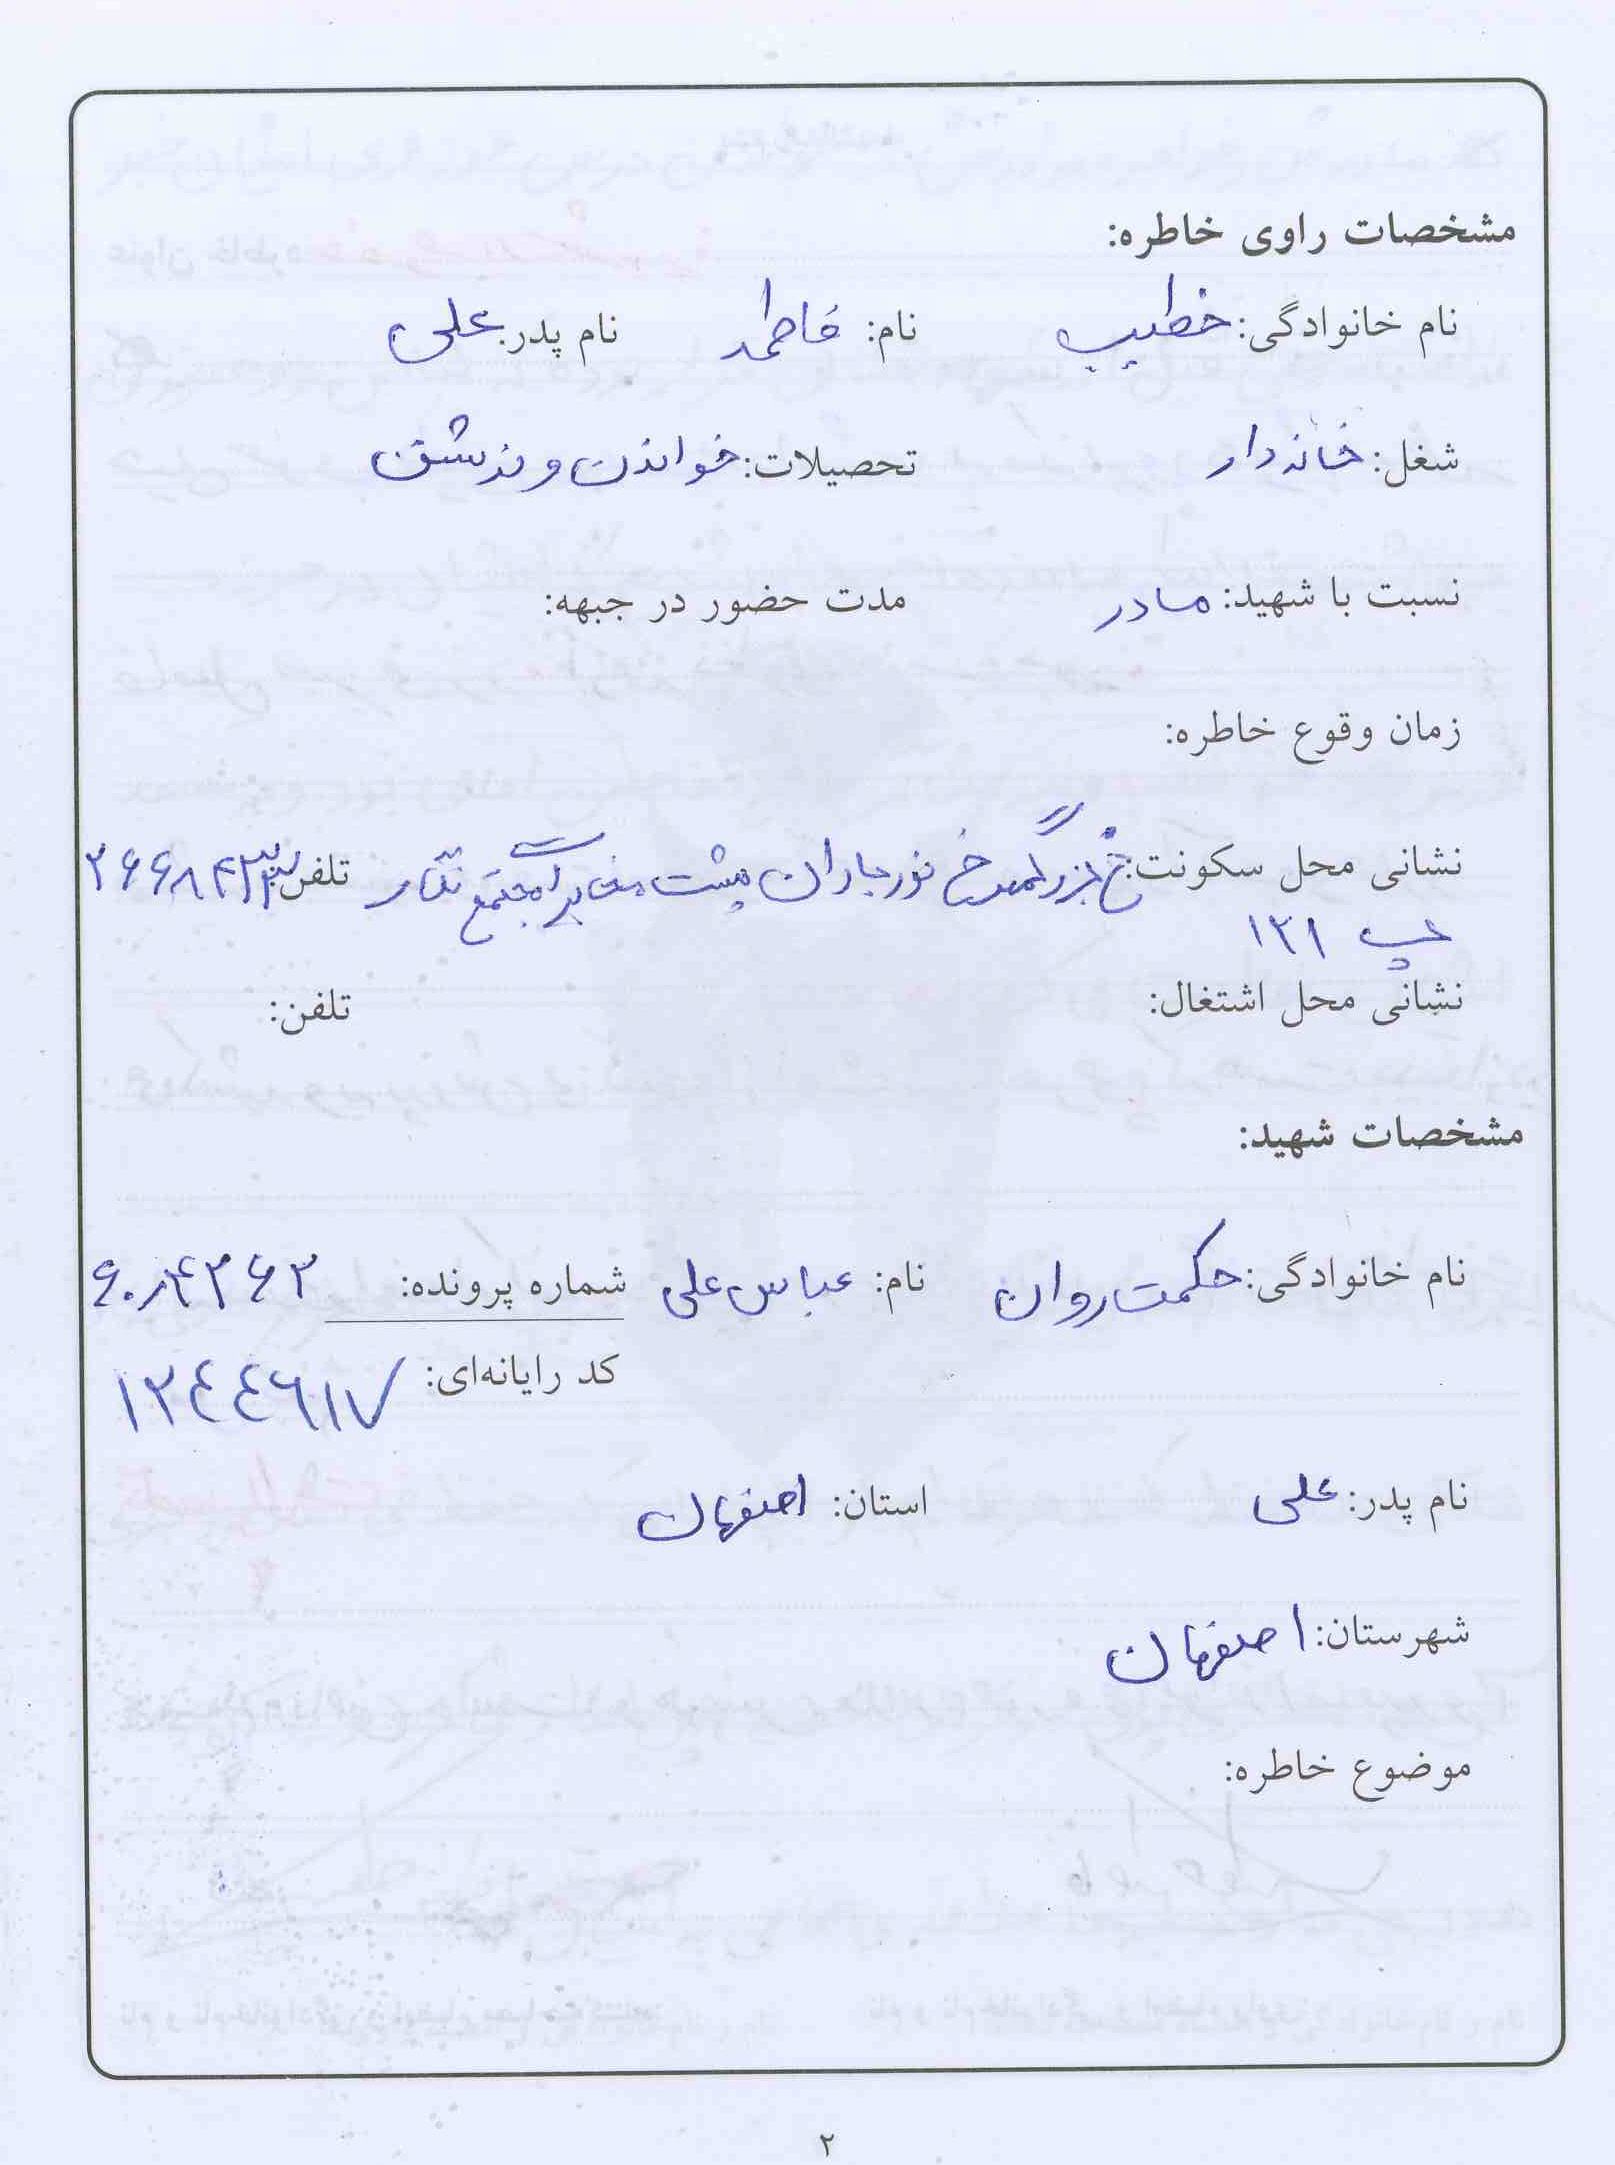 مشخصات راوی خاطره:
نام خانوادگی: خطیب نام: فاطمه نام پدر: علی
شغل: خانه دار تحصیلات: خواندن و نوشتن
نسبت با شهید: مادر مدت حضور در جبهه:
زمان وقوع خاطره:
نشانی محل سکونت: خ بزرگمهر خ نورباران پشت مجتمع تلفن:
پ ۱۲۱
نشانی محل اشتغال: تلفن:
مشخصات شهید:
نام خانوادگی: حکمت روان نام: عباس علی شماره پرونده:
کد رایانه‌ای: ۱۲۴۴۶۱۷
نام پدر: علی استان: اصفهان
شهرستان: اصفهان
موضوع خاطره:
۲